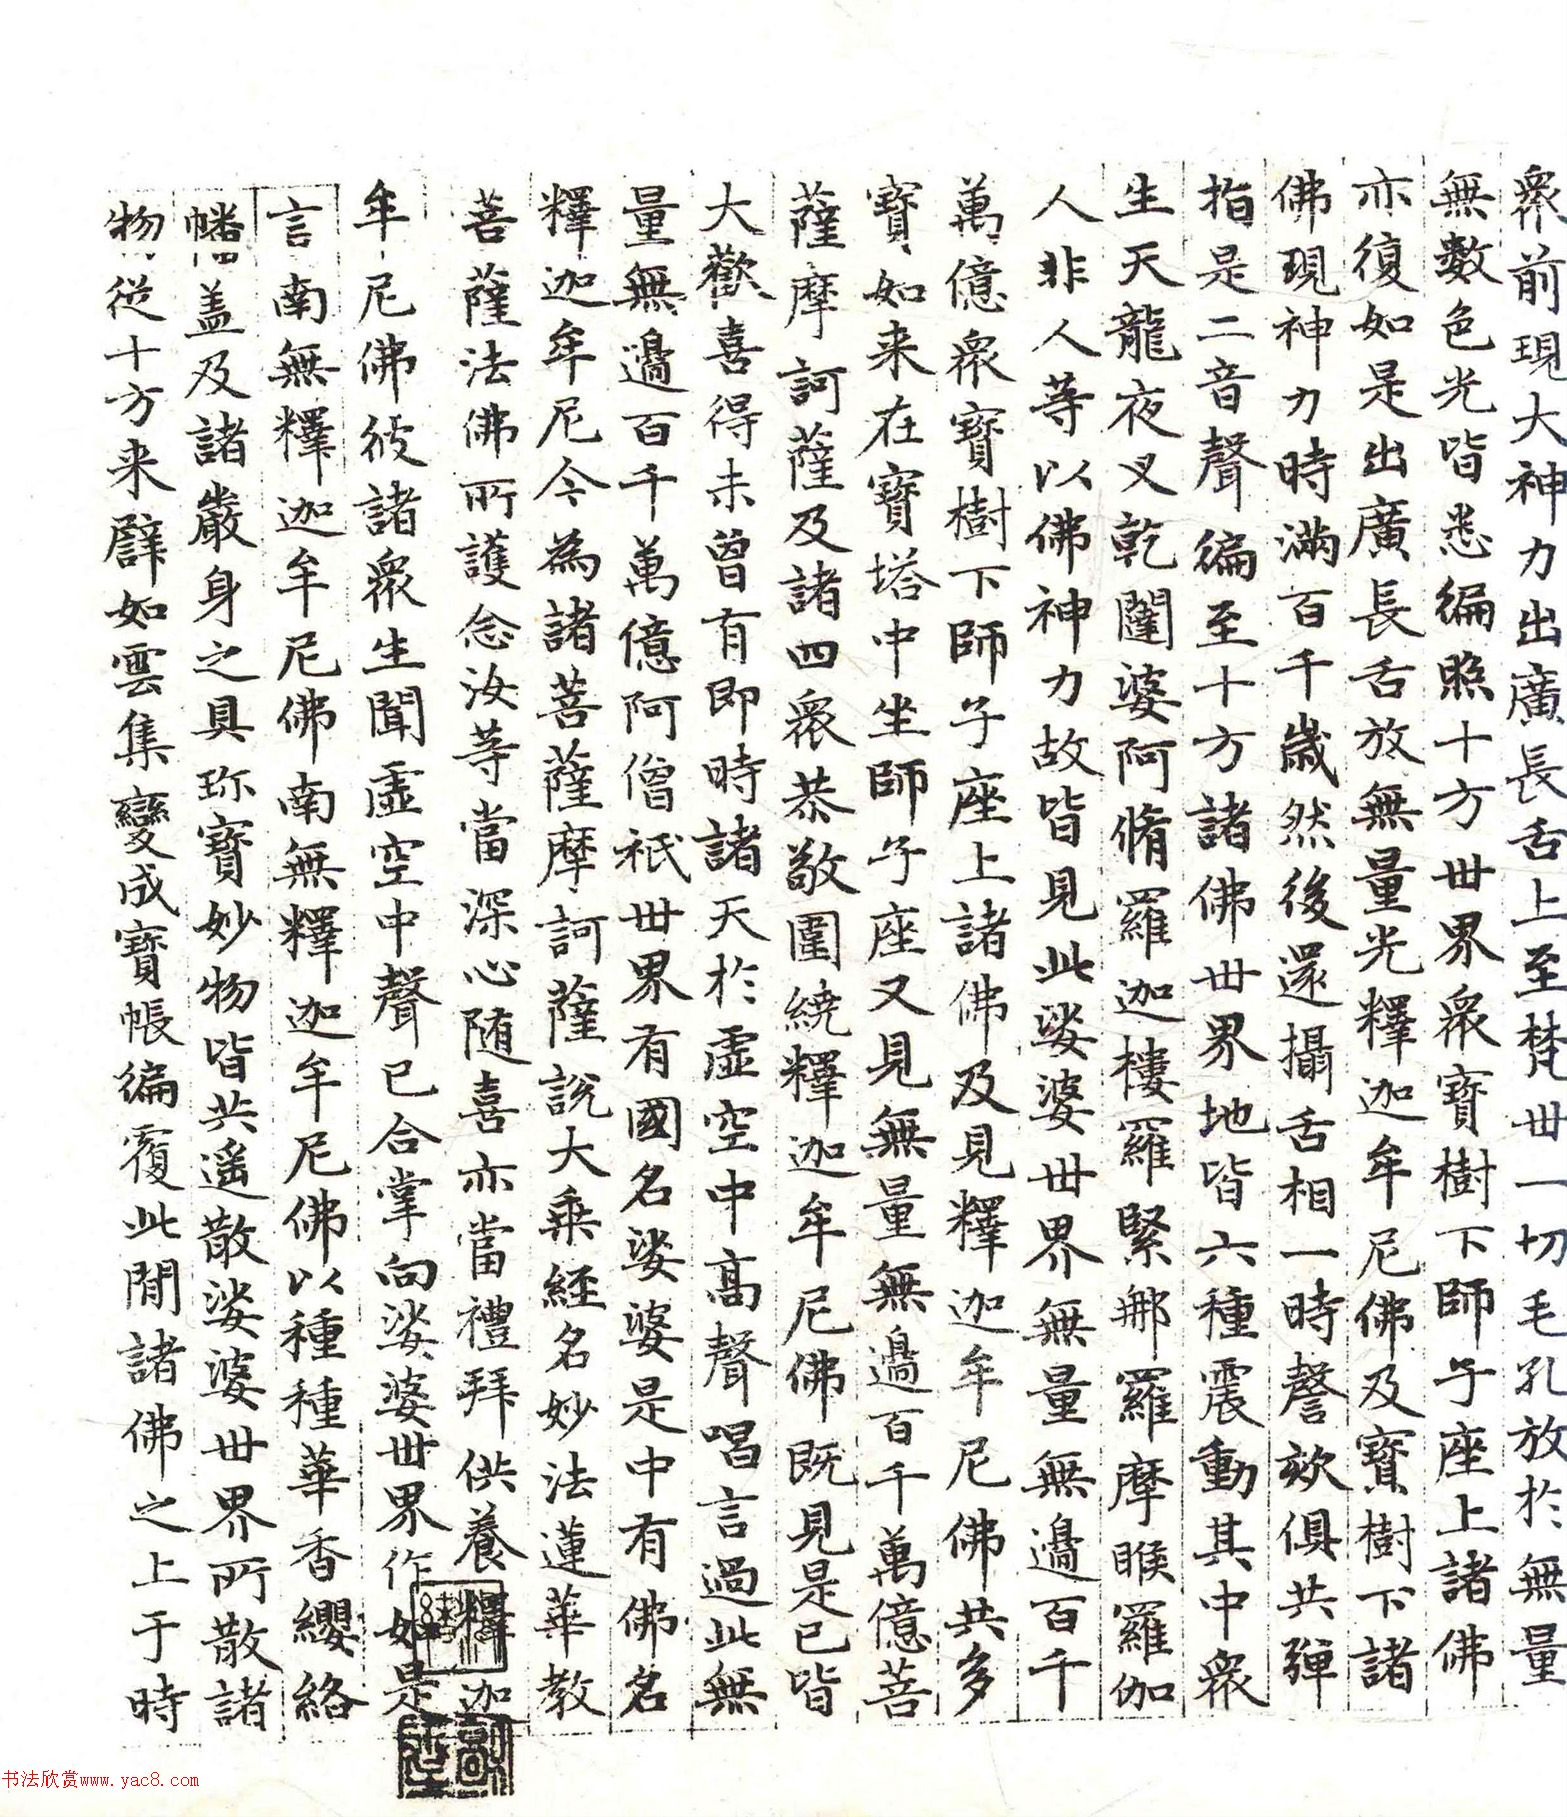 衆前現大神力出廣長舌上至梵世一切毛孔放於無量
無數色光皆悉徧照十方世界衆寶樹下師子座上諸佛
亦復如是出廣長舌放無量光釋迦牟尼佛及寶樹下諸
佛現神力時滿百千歲然後還攝舌相一時謦欬俱共彈
指是二音聲徧至十方諸佛世界地皆六種震動其中衆
生天龍夜叉乾闥婆阿脩羅迦樓羅緊那羅摩睺羅伽
人非人等以佛神力故皆見此娑婆世界無量無邊百千
萬億衆寶樹下師子座上諸佛及見釋迦牟尼佛共多
寶如来在寶塔中坐師子座又見無量無邊百千萬億菩
薩摩訶薩及諸四衆恭敬圍繞釋迦牟尼佛既見是已皆
大歡喜得未曾有即時諸天於虛空中高聲唱言過此無
量無邊百千萬億阿僧祇世界有國名娑婆是中有佛名
釋迦牟尼今為諸菩薩摩訶薩說大乘經名妙法蓮華教
菩薩法佛所護念汝等當深心随喜亦當禮拜供養釋迦
牟尼佛彼諸衆生聞虛空中聲已合掌向娑婆世界作如是
言南無釋迦牟尼佛南無釋迦牟尼佛以種種華香纓絡
幡盖及諸嚴身之具珎寶妙物皆共遥散娑婆世界所散諸
物從十方来譬如雲集變成寶帳徧覆此間諸佛之上于時
书法欣赏www.yac8.com